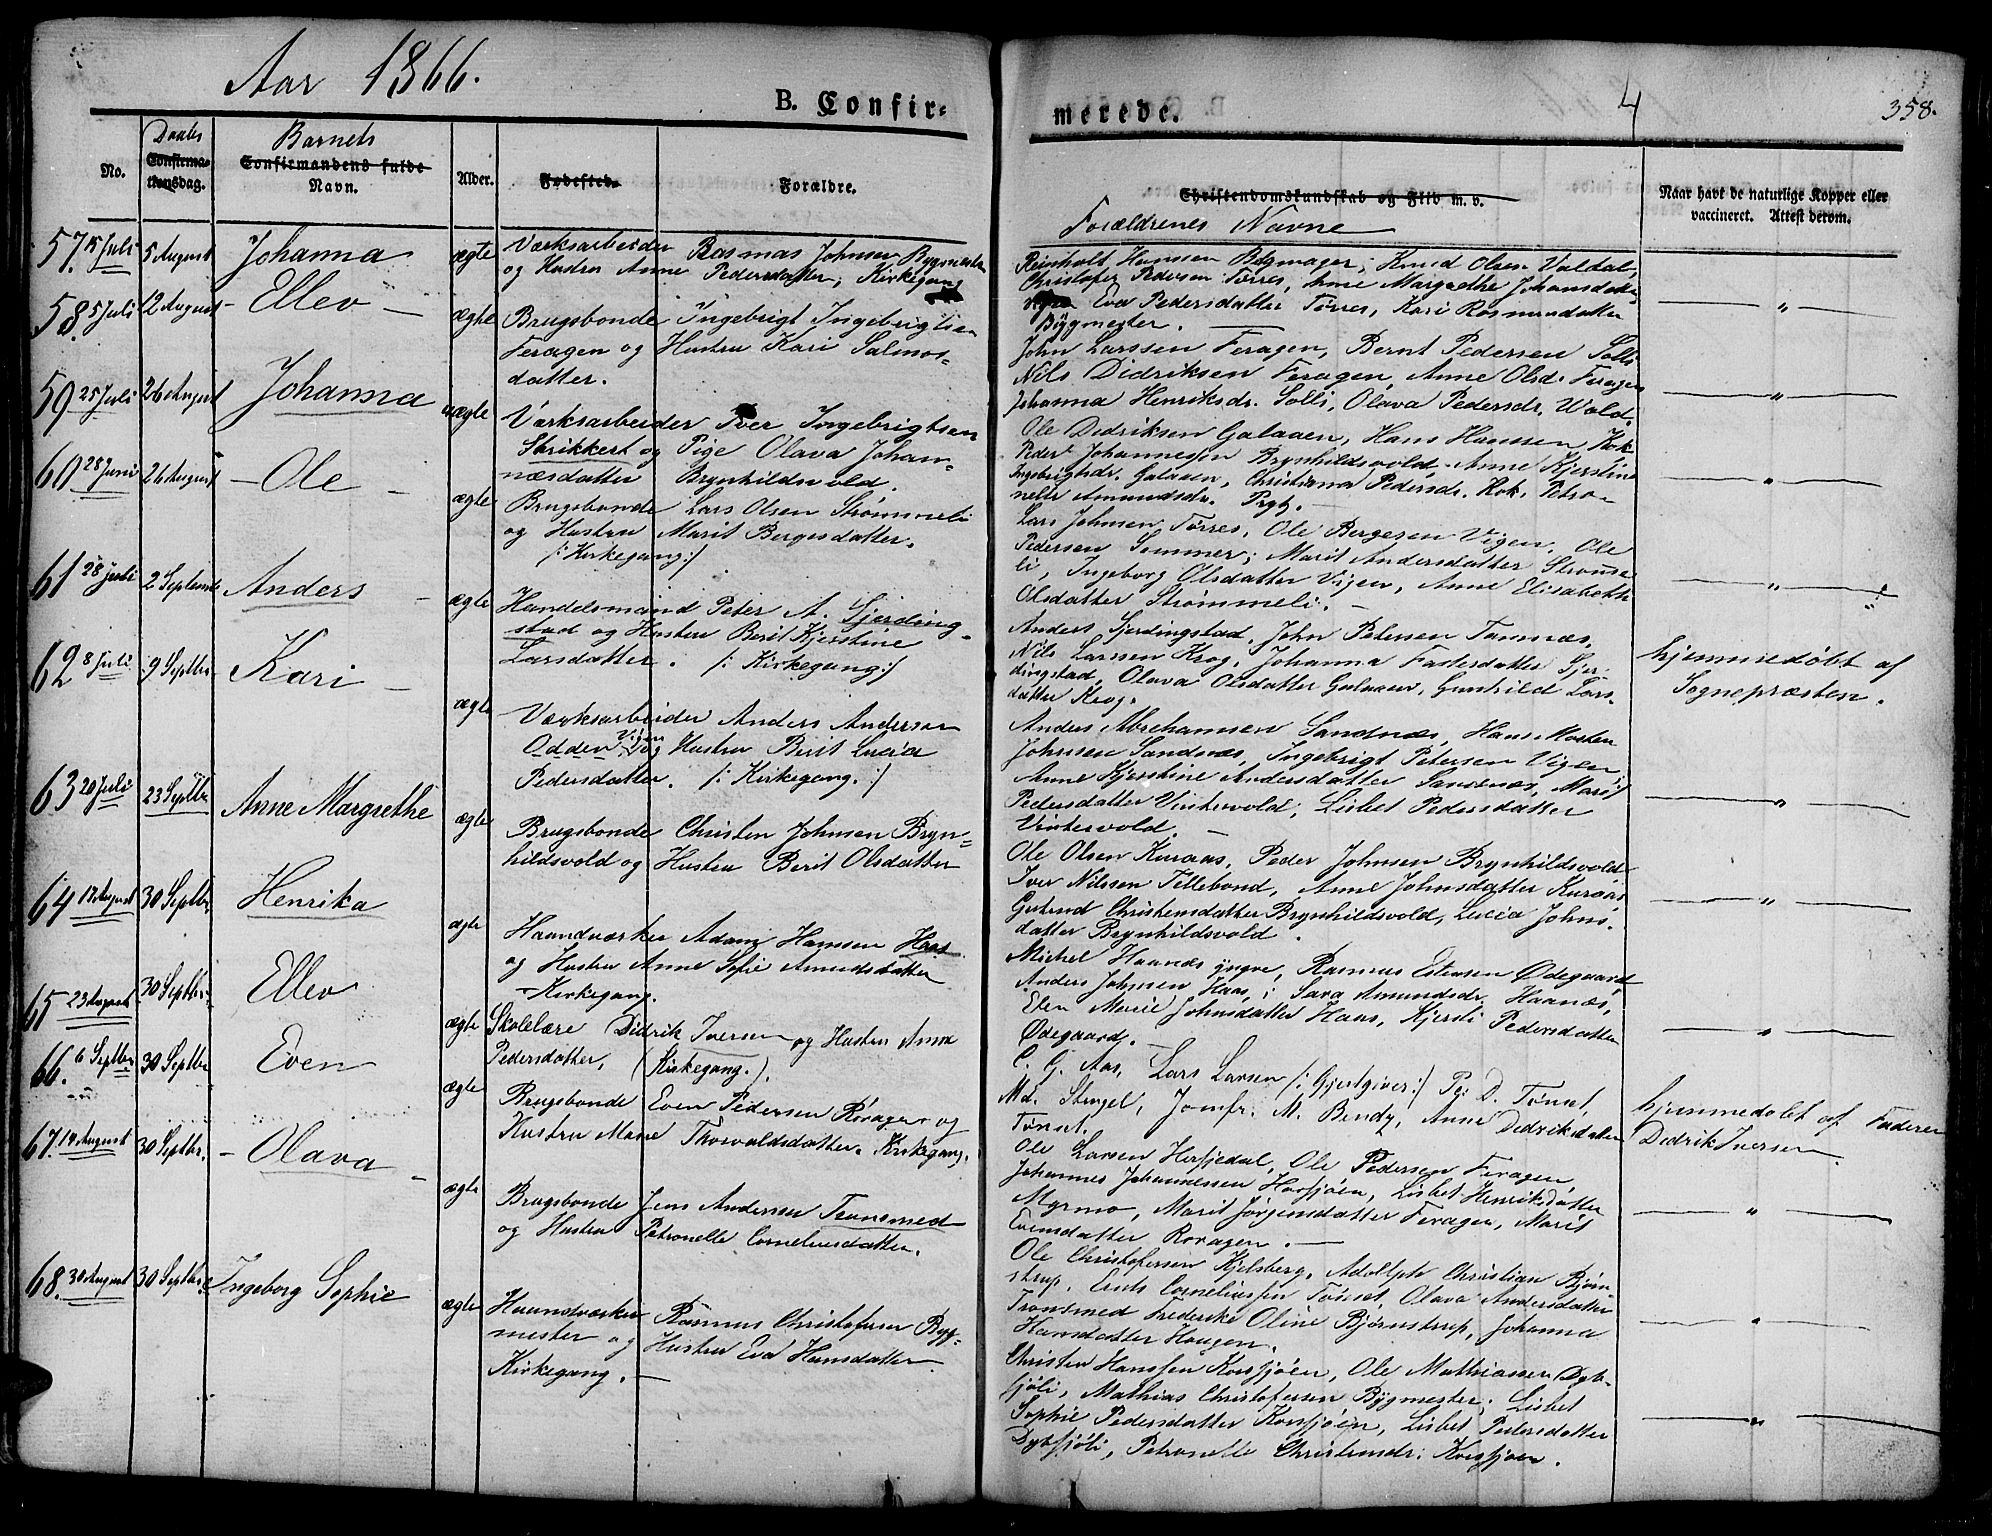 Aar 1866.
B. Confir-
merede.
4
358.
No.
Daabs
Confirma-
tionsdag.
Barnets
Confirmandens fulde
Navn.
Alder.
Fødested.
Forældre.
Christendomskundskab og Flid m. v.
Forældrenes Navne
Naar havt de naturlige Kopper eller
vaccineret. Attest derom.
57. 15 Juli
5 August
Johanna
ægte
Værksarbeider Rasmus Johnsen Bygmester
og Hustru Anne Pedersdatter, Kirkegang
Reinholt Hanssen Bøgmager, Knud Olsen Valdal,
Christofer Pedersen Tørres, Anne Margrethe Johansdatter
Eva Pedersdatter Tørres, Kari Rasmusdatter
Bÿgmester. —
"
58. 5 Juli
12 August
Ellev —
ægte
Brugsbonde Ingebrigt Ingebrigtsen
Feragen og Hustru Kari Salmos-
datter.
John Larssen Feragen, Bernt Pedersen Solli
Nils Didriksen Feragen, Anne Olsd. Feragen
Johanna Henriksdr. Solli, Olava Pedersdr. Wold.
"
59 25 Juli
26 August
Johanna
uægte
Værksarbeider Iver Ingebrigtsen
Strikkert og Pige Olava Johan-
næsdatter Brynhildsvold.
Ole Didriksen Galaaen, Hans Hanssen Kok
Peder Johannesen Brynhildsvold, Anne Kjerstine
Ingebrigtsdr. Galaaen, Christiana Pedersdr. Kok, Petro-
nelle Amundsdr. Prgtz. —
"
60 28 Juni
26 August
— Ole —
ægte
Brugsbonde Lars Olsen Strømmeli
og Hustru Marit Bergesdatter.
/: Kirkegang :/
Lars Johnsen Tørres, Ole Bergesen Vigen, Ole
Pedersen Sommer; Marit Andersdatter Strømme
li, Ingeborg Olsdatter Vigen, Anne Elisabeth
Olsdatter Strømmeli. —
"
61 28 Juli
2 Septembr
Anders —
ægte
Handelsmand Peter A. Sjerding-
stad og Hustru Berit Kjerstine
Larsdatter. /: Kirkegang :/
Anders Sjerdingstad, John Petersen Tamnæs,
Nils Larssen Krog, Johanna Fastesdatter Sjer-
dingstad, Olava Olsdatter Galaaen, Gunhild Lars-
datter Krog.
hjemmedøbt af
Sognepræsten.
62 8 Juli
9 Septbr
Kari —
ægte
Værksarbeider Anders Andersen
Odden Vigen og Hustru Berit Lucia
Pedersdatter. /: Kirkegang. :/
Anders Abrahamsen Sandnæs, Hans Morten
Johnsen Sandnæs, Ingebrigt Petersen Vigen,
Anne Kjerstine Andersdatter Sandnæs, Marit
Pedersdatter Vintervold, Lisbet Pedersdatter
Vintervold. —
"
63 20 Juli
23 Septbr
Anne Margrethe
ægte
Brugsbonde Christen Johnsen Bryn-
hildsvold og Hustru Berit Olsdatter
Ole Olsen Kuraas, Peder Johnsen Brynhildsvold
Iver Nilssen Tellebond, Anne Johnsdatter Kuraas
Gertrud Christensdatter Brynhildsvold, Lucia Johns-
datter Brynhildsvold.
"
64 17 August
30 Septbr
Henrika
ægte
Haandværker Adam Hanssen Haas
og Hustru Anne Sofie Amundsdatter
— Kirkegang.
Michel Haanæs yngre, Rasmus Estensen Ødegaard
Anders Johnsen Haas, Sara Amundsdr. Haanæs,
Elen Marie Johnsdatter Haas, Kjersti Pedersdatter
Ødegaard. —
"
65 23 August
30 Septbr.
Ellev
ægte
Skolelære Didrik Iversen og Hustru Anne
Pedersdatter, (Kirkegang.).
C. G. Aas, Lars Larsen /: Gjestgiver :/ P. D. Tønset,
Md. Stengel, Jomfr. M. Bendz, Anne Didriksdatter
Tønset.
hjemmedøbt af Faderen
Didrik Iversen.
66. 6 Septbr
30 Septbr
Even
ægte
Brugsbonde Even Pedersen Rørager og
Hustru Marie Thorvaldsdatter. Kirkegang.
Ole Larsen Herjedal, Ole Pedersen Feragen,
Johannes Johannessen Havsjøen, Lisbet Henriksdatter
Myrmo, Marit Jørgensdatter Feragen, Marit
Evensdatter Roragen. —
"
67. 14 August
30 Septbr.
— Olava —
ægte
Brugsbonde Jens Andersen Tronsmed
og Hustru Petronelle Corneliusdatter.
Ole Christofersen Kjelsberg, Adolph Christian Bjørn
strup, Ernts Corneliussen Tønset, Olava Andersdatter
Tronsmed Frederike Oline Bjørnstrup, Johanna
Hansdatter Haugen.
"
68. 30 August
30 Septbr.
Ingeborg Sophie
ægte
Haandværker Rasmus Christofersen Byg-
mester og Hustru Eva Hansdatter
Kirkegang. —
Christen Hanssen Korssjøen, Ole Mathiassen Dyb-
sjøli, Mathias Christofersen Bÿgmester; Lisbet
Sophie Pedersdatter Korssjøen, Lisbet Pedersdatter
Dybsjøli, Petronelle Christensdr. Korssjøen.
"